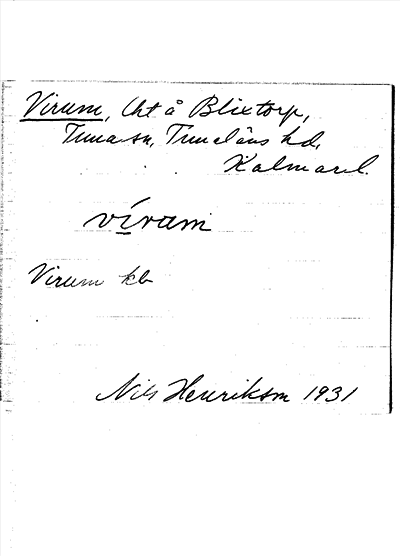 Virum, lht å Blixtorp,
Tuna sn, Tunaläns hd,
Kalmar l.
víram
Virum kb
Nils Henrikson 1931